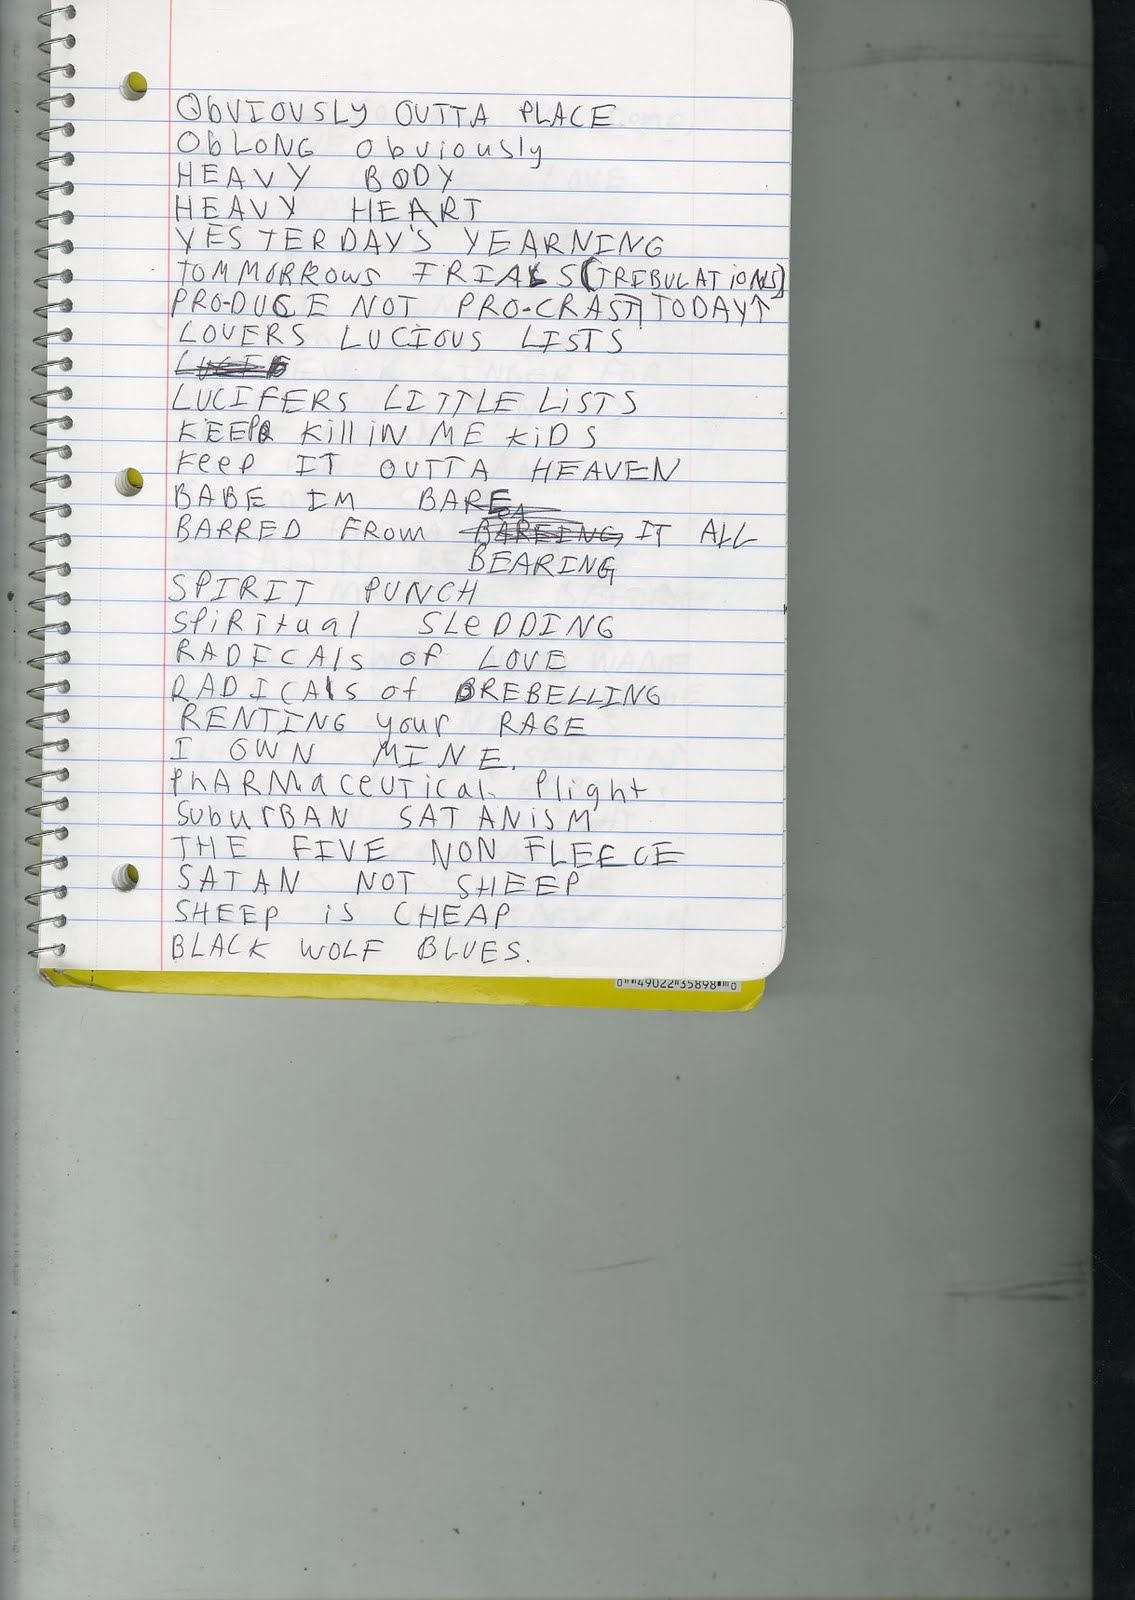 ObVIOUSLY OUTTA PLACE
ObLONG obviously
HEAVY BODY
HEAVY HEART
YESTERDAY'S YEARNING
TOMMORROWS TRIALS (TRIBULATIONS)
PRO-DUCE NOT PRO-CRAST TODAY↑
LOVERS LUCIOUS LISTS
LUCIFERS LITTLE LiSTS
KEEP KilliN ME KiDS
KeeP IT OUTTA HEAVEN
BABE IM BARE
BARRED FROM BEARING IT ALL
SPIRIT PUNCH
SPiRitual SLeDDING
RADICAls of LOVE
RADICAlS of REBELLING
RENTING your RAGE
I OWN MINE.
PhARMaceUTical Plight
SubUrBAN SATANiSM
THE FIVE NON FLEECE
SATAN NOT SHEEP
SHEEP iS CHEAP
BLACK WOLF BLUES.
0 49022 35898 0